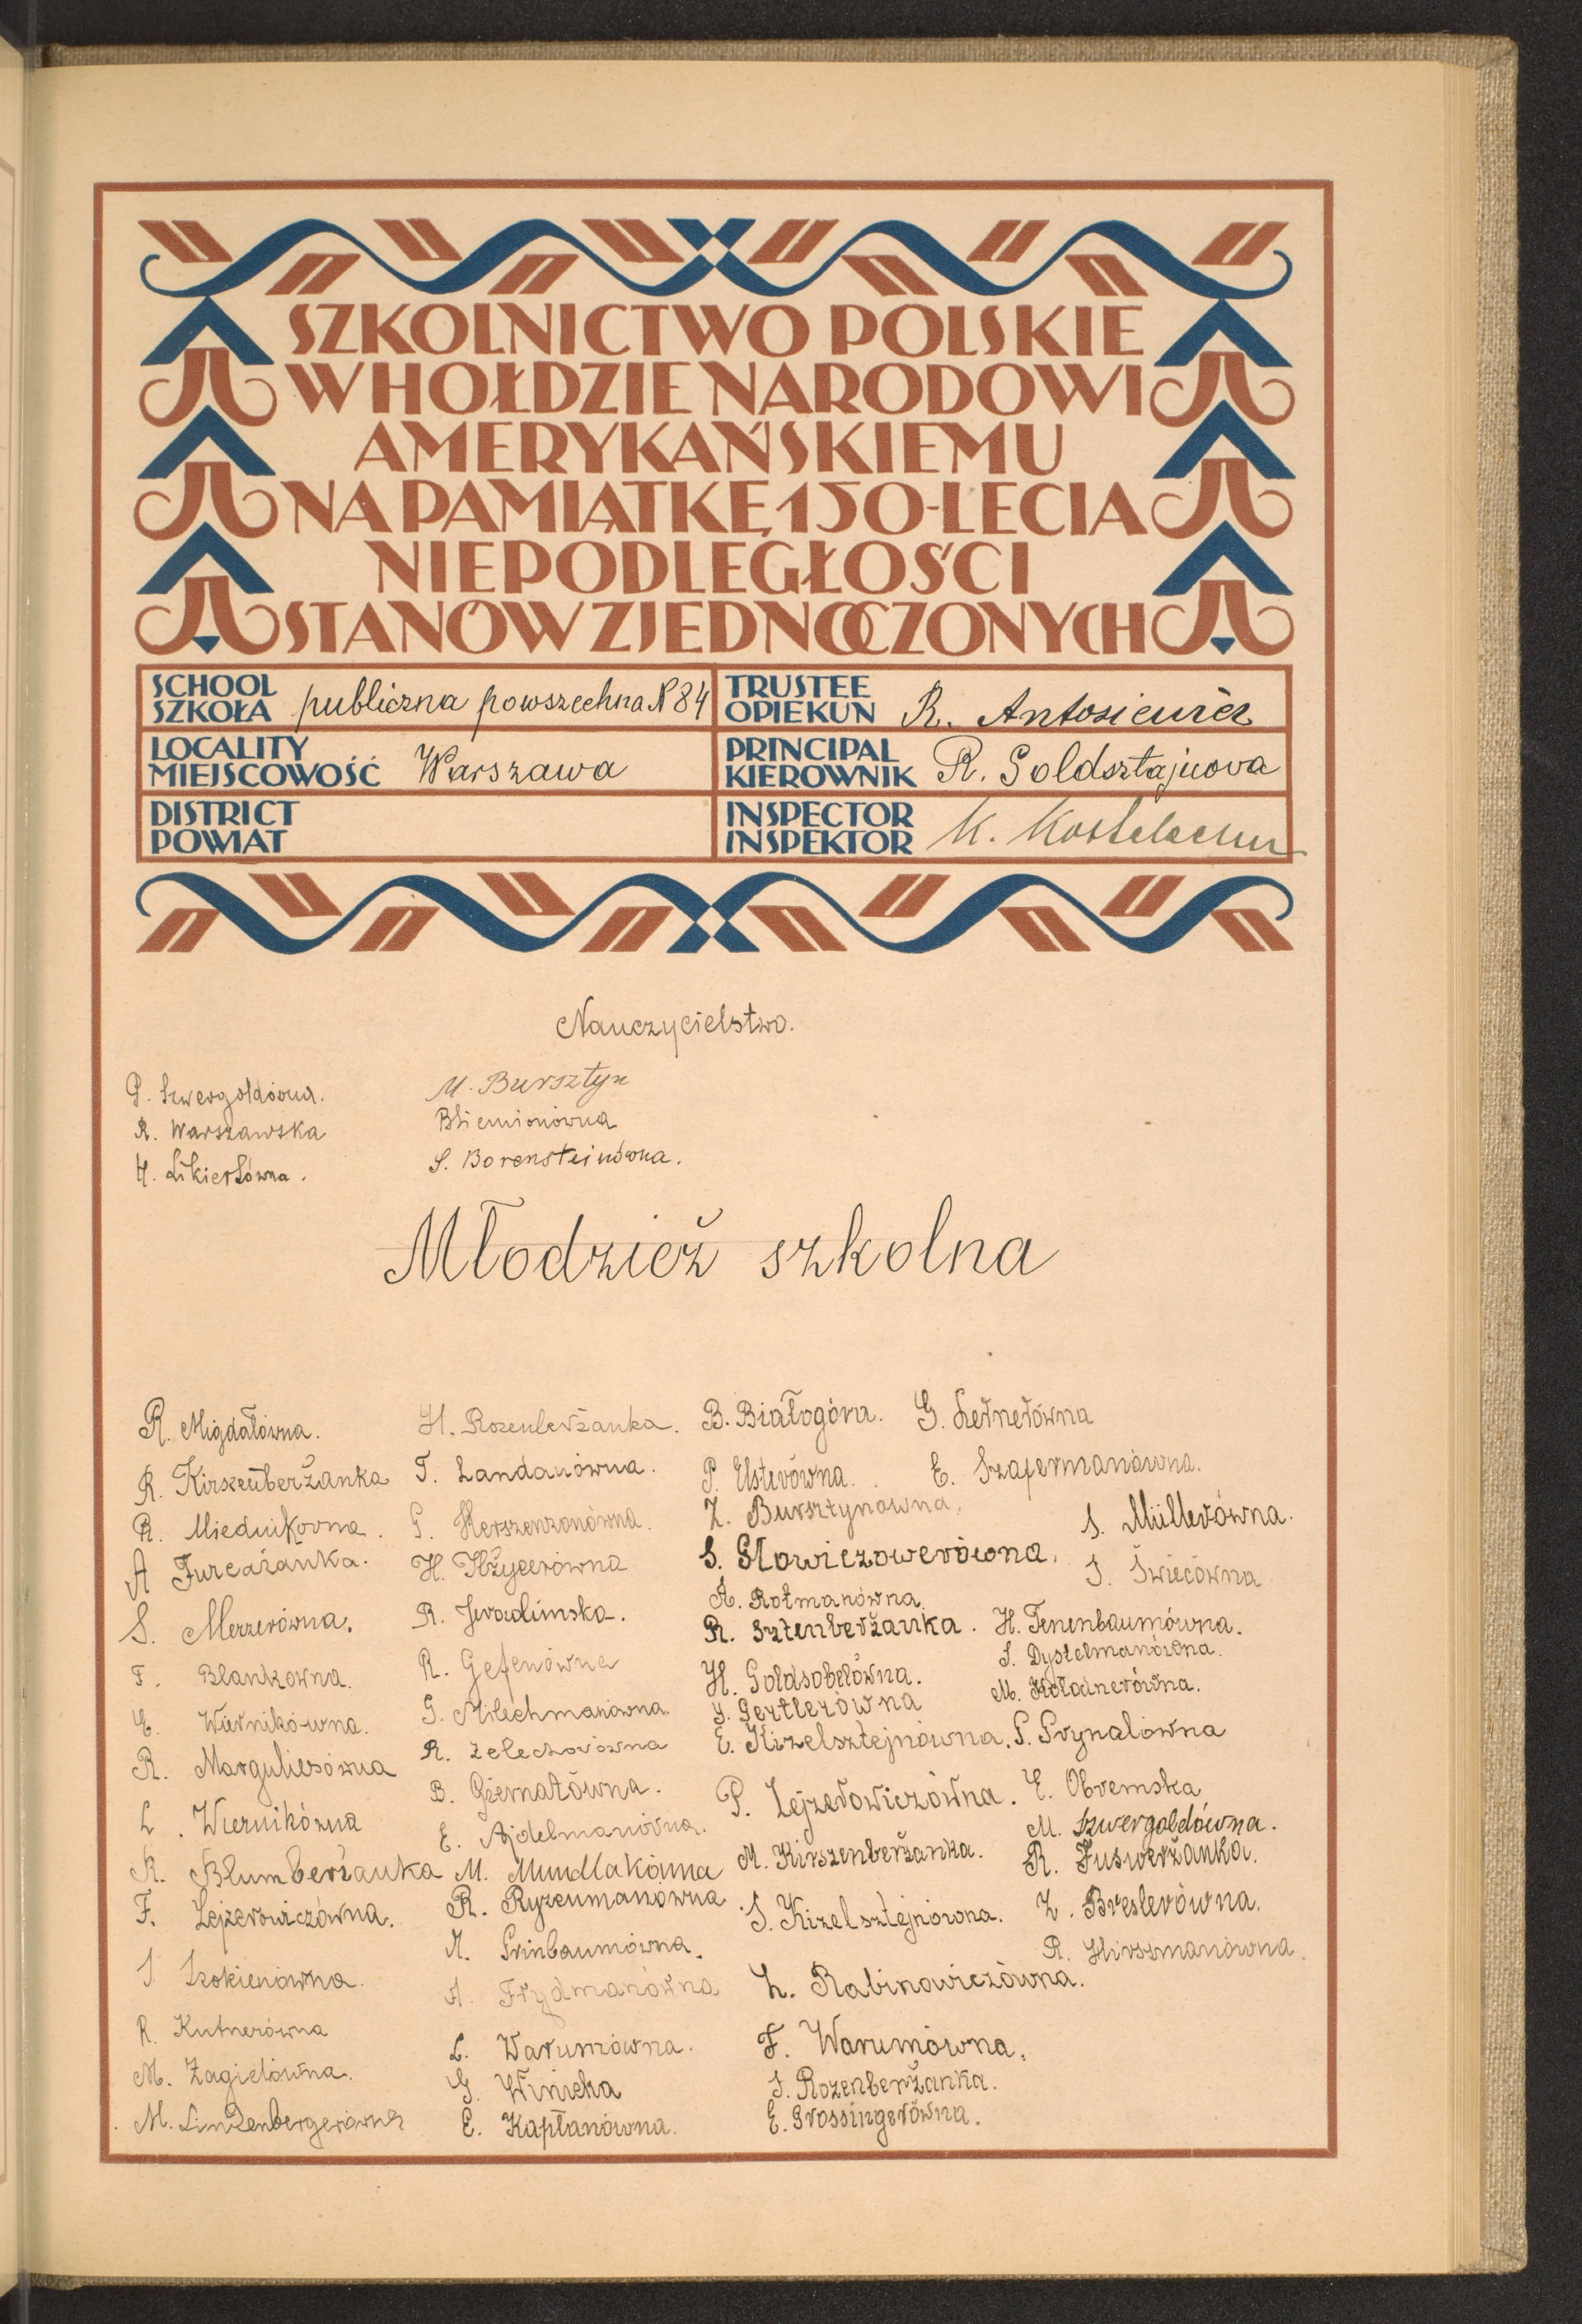 SZKOLNICTWO POLSKIE
W HOŁDZIE NARODOWI
AMERYKAŃSKIEMU
NA PAMIĄTKĘ 150-LECIA
NIEPODLEGŁOŚCI
STANÓW ZJEDNOCZONYCH
SCHOOL
SZKOŁA publiczna powszechna N 84
TRUSTEE
OPIEKUN R. Antosiewicz
LOCALITY
MIEJSCOWOŚĆ Warszawa
PRINCIPAL
KIEROWNIK R. Goldsztajnova
DISTRICT
POWIAT
INSPECTOR
INSPEKTOR K.
Nauczycielstwo.
P. Szwergoldówna.
R. Warszawska
H. Likierówna.
M. Bursztyn
S. Borensteinówna.
Młodzież szkolna
R. Migdałówna.
R. Kirszenberżanka
R. Miednikovna.
A Furcarzanka.
S. Mezerówna.
F. Blankowna.
E. Wiernikówna.
R. Marguliesówna
L. Wiernikówna
R. Blumberżanka
F. Lejzerowiczówna.
S. Szokienówna.
R. Kutnerówna
M. Zagielówna.
M. Lindenbergerówna
H. Rozenberżanka.
T. Landauówna.
G. Herszenzonówna.
H.
R. Jerozolimska.
R. Gefenówna
G. Milechmanówna.
R. Zelechovówna
B. Giernatówna.
E. Ajdelmanówna.
M. Mundlakówna
R. Ryzenmanówna
M. Grinbaumówna.
A. Frydmanówna
L. Warumówna.
G. Winicka
E. Kapłanówna.
B. Białogóra.
P. Usterówna.
Z. Bursztynowna.
S. Głowiczowerówna.
A. Rotmanówna.
R. Sztenberżanka.
H. Goldsobelówna.
G. Gertlerówna
E. Kizelsztejnówna.
P. Lejzerowiczówna.
M. Kirszenberżanka.
S. Kizelsztejnówna.
L. Rabinowiczówna.
F. Warumówna.
S. Rozenberżanka.
E. Grossingerówna.
G. Lernerówna
E. Szafermanówna.
S. Müllerówna.
S. Świecówna
H. Tenenbaumówna.
S. Dystelmanówna.
M. Kołodnerówna.
G. Grynalówna
E. Obremska
M. Szwergoldówna.
R. Fuswerżanka.
Z. Breslerówna.
R. Hirszmanówna.